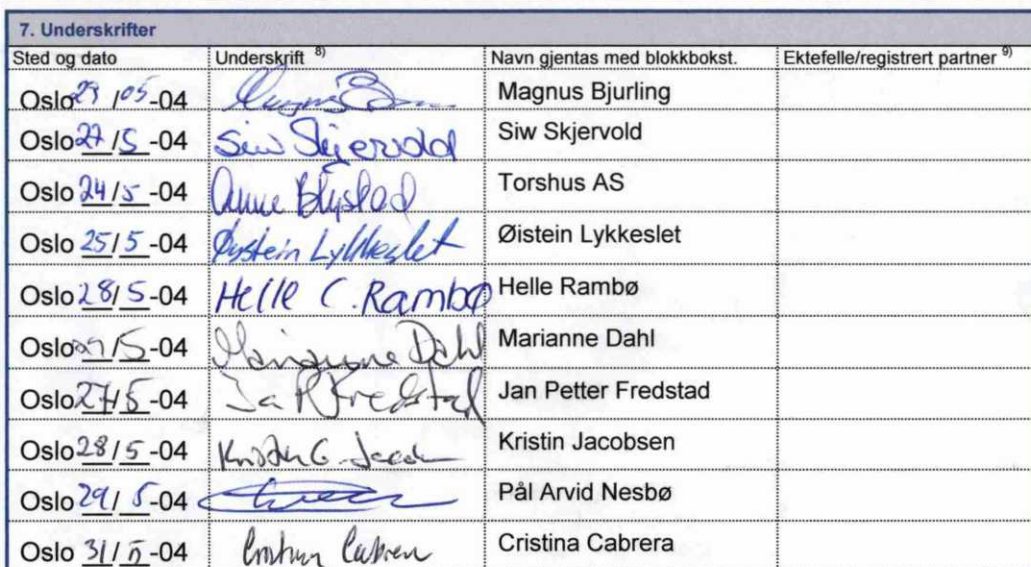 7. Underskrifter
Sted og dato Underskrift 8) Navn gjentas med blokkbokst. Ektefelle/registrert partner 9)
Oslo 29/05-04 Magnus Bjurling
Oslo 27/5-04 Siw Skjervold Siw Skjervold
Oslo 24/5-04 Anne Blystad Torshus AS
Oslo 25/5-04 Øystein Lykkeslet Øistein Lykkeslet
Oslo 28/5-04 Helle C. Rambø Helle Rambø
Oslo /5-04 Marianne Dahl Marianne Dahl
Oslo 27/5-04 Jan P Fredstad Jan Petter Fredstad
Oslo 28/5-04 Kristin G. Jacobsen Kristin Jacobsen
Oslo 29/5-04 Pål Arvid Nesbø
Oslo 31/5-04 Cristina Cabrera Cristina Cabrera